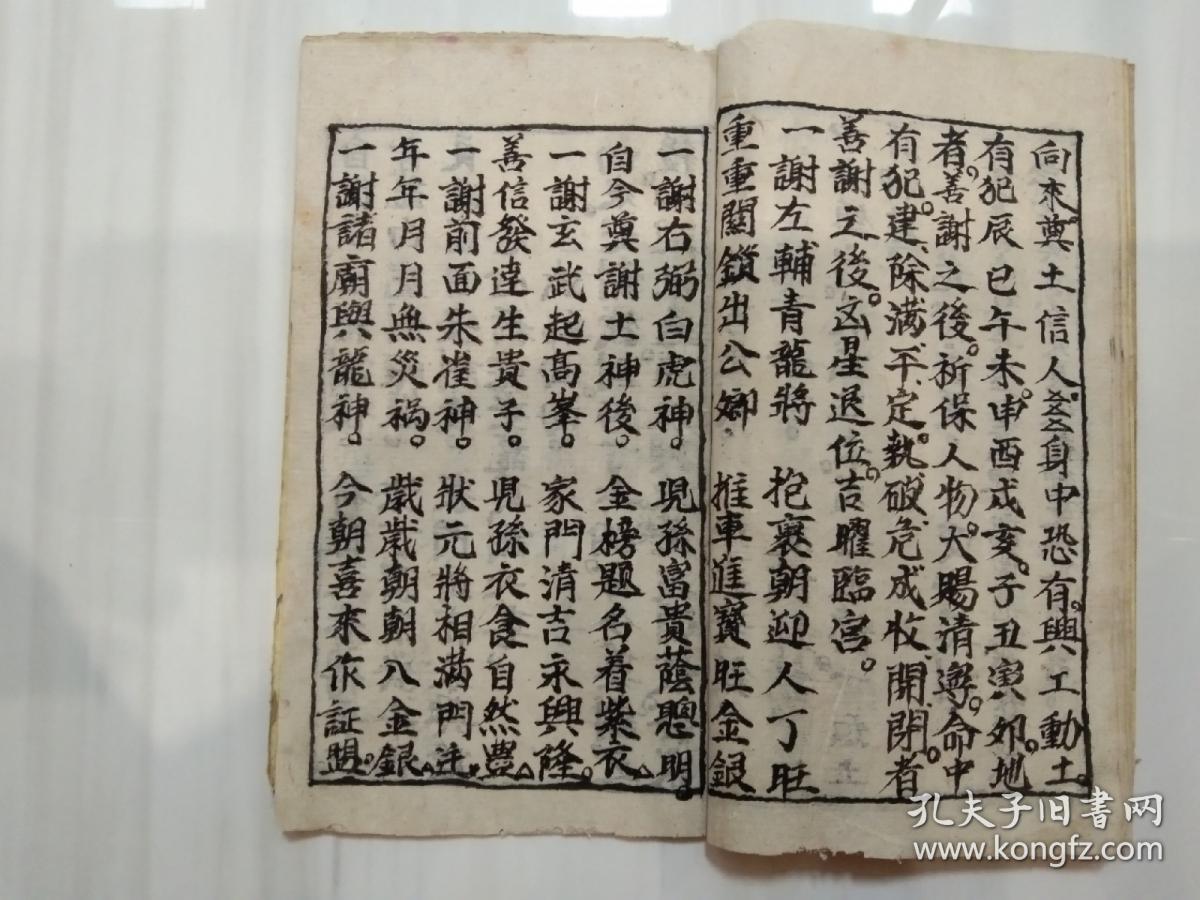 向來奠土信人厶厶身中恐有興工動土。
有犯辰巳午未。申酉戌亥。子丑寅卯。地
者。善謝之後。祈保人物。大賜清寧。命中
有犯建、除、满、平、定、執、破、危、成、收、開、閉。者
善謝之後。凶星退位。吉曜臨宮。
一謝左輔青龍將　抱裹朝迎人丁旺
重重關鎖出公卿　推車進寶旺金銀
一謝右弼白虎神。兒孫富貴蔭聰明。
自今奠謝土神後。金榜题名着紫衣
一謝玄武起高峯。家門清吉永興隆。
善信發達生貴子。兒孫衣食自然豊
一謝前面朱雀神。狀元將相满門庭
年年月月無災禍。歲歲朝朝八金銀
一謝諸廟與龍神。今朝喜來作証盟。
孔夫子旧書网
www.kongfz.com